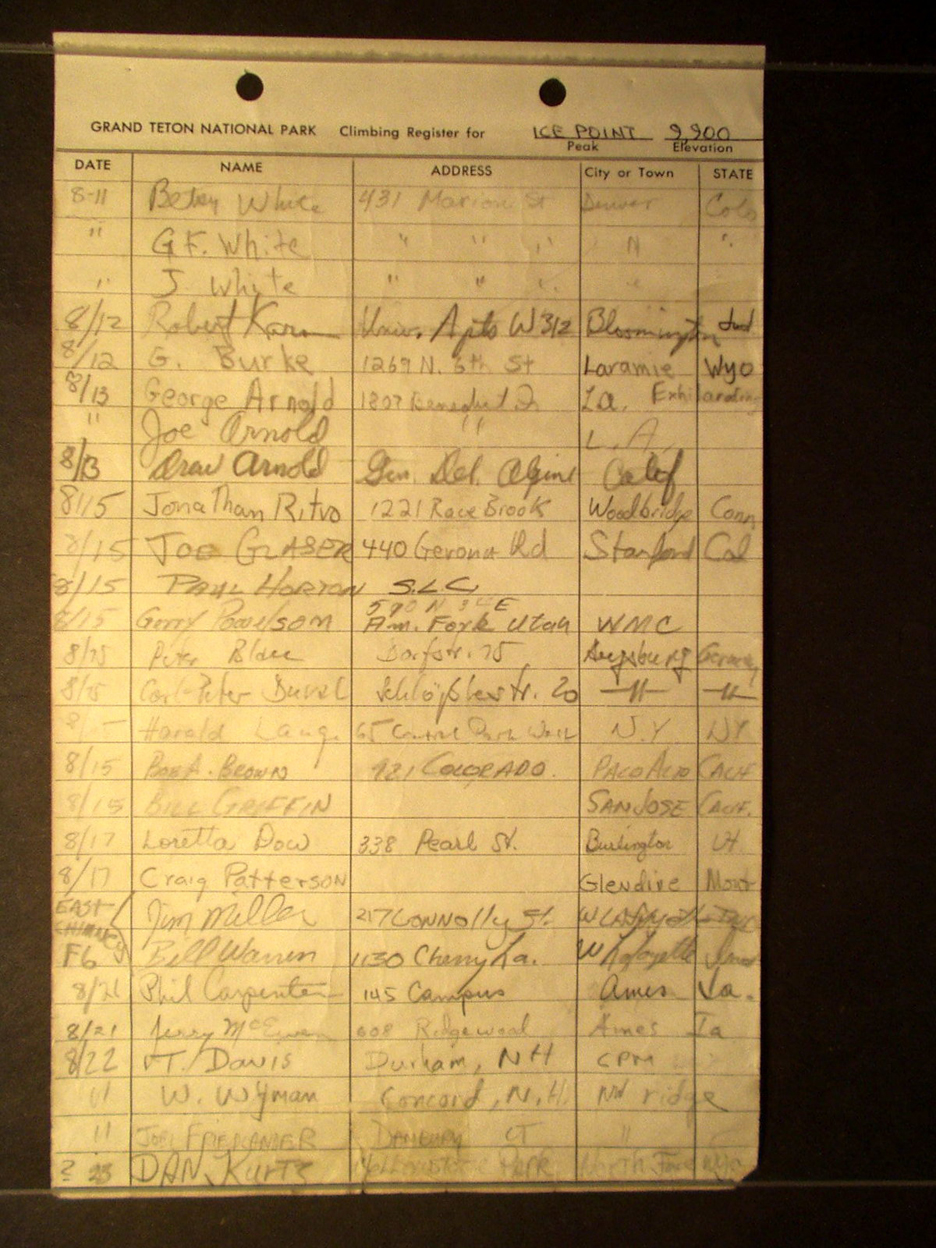 GRAND TETON NATIONAL PARK Climbing Register for ICE POINT 9,900
Peak Elevation
DATE NAME ADDRESS City or Town STATE
8-11 Betsy White 431 Marion St Denver Colo
" G.F. White " " " " "
" J. White " " " "
8/12 Robert Univ. Apts W312 Bloomington Ind
8/12 G. Burke 1269 N. 6th St Laramie Wyo
8/13 George Arnold La.
" Joe Arnold " L.A.
8/13 Drew Arnold Gen. Del. Alpine Calif
8/15 Jonathan Ritvo 1221 Race Brook Woodbridge Conn
8/15 JOE GLASER 440 Gerona Rd Stanford Cal
8/15 PAUL HORTON S.L.C.
590 N E
8/15 Am. Fork Utah WMC
Peter Dorfstr. 75 Augsburg Germany
Carl-Peter 20 -"- -"-
8/ Harald 65 Central Park West N.Y NY
8/15 BOB A. BROWN 921 COLORADO. PALO ALTO CALIF
8/15 BILL GRIFFIN SAN JOSE CALIF.
8/17 Loretta Dow 338 Pearl St. Burlington Vt
8/17 Craig Patterson Glendive Mont
EAST Jim Miller 217 CONNOlly St. W Lafayette Ind
CHIMNEY
F6 Bill Warren 1130 Cherry La. W Lafayette Ind
8/21 Phil Carpenter 145 Campus Ames Ia.
8/21 Jerry McEwen 608 Ridgewood Ames Ia
8/22 Davis Durham, NH CPM
11 W. Wyman Concord, N.H. NW ridge
11 DANBURY CT "
23 DAN KURTZ Yellowstone Park North Face Wyo